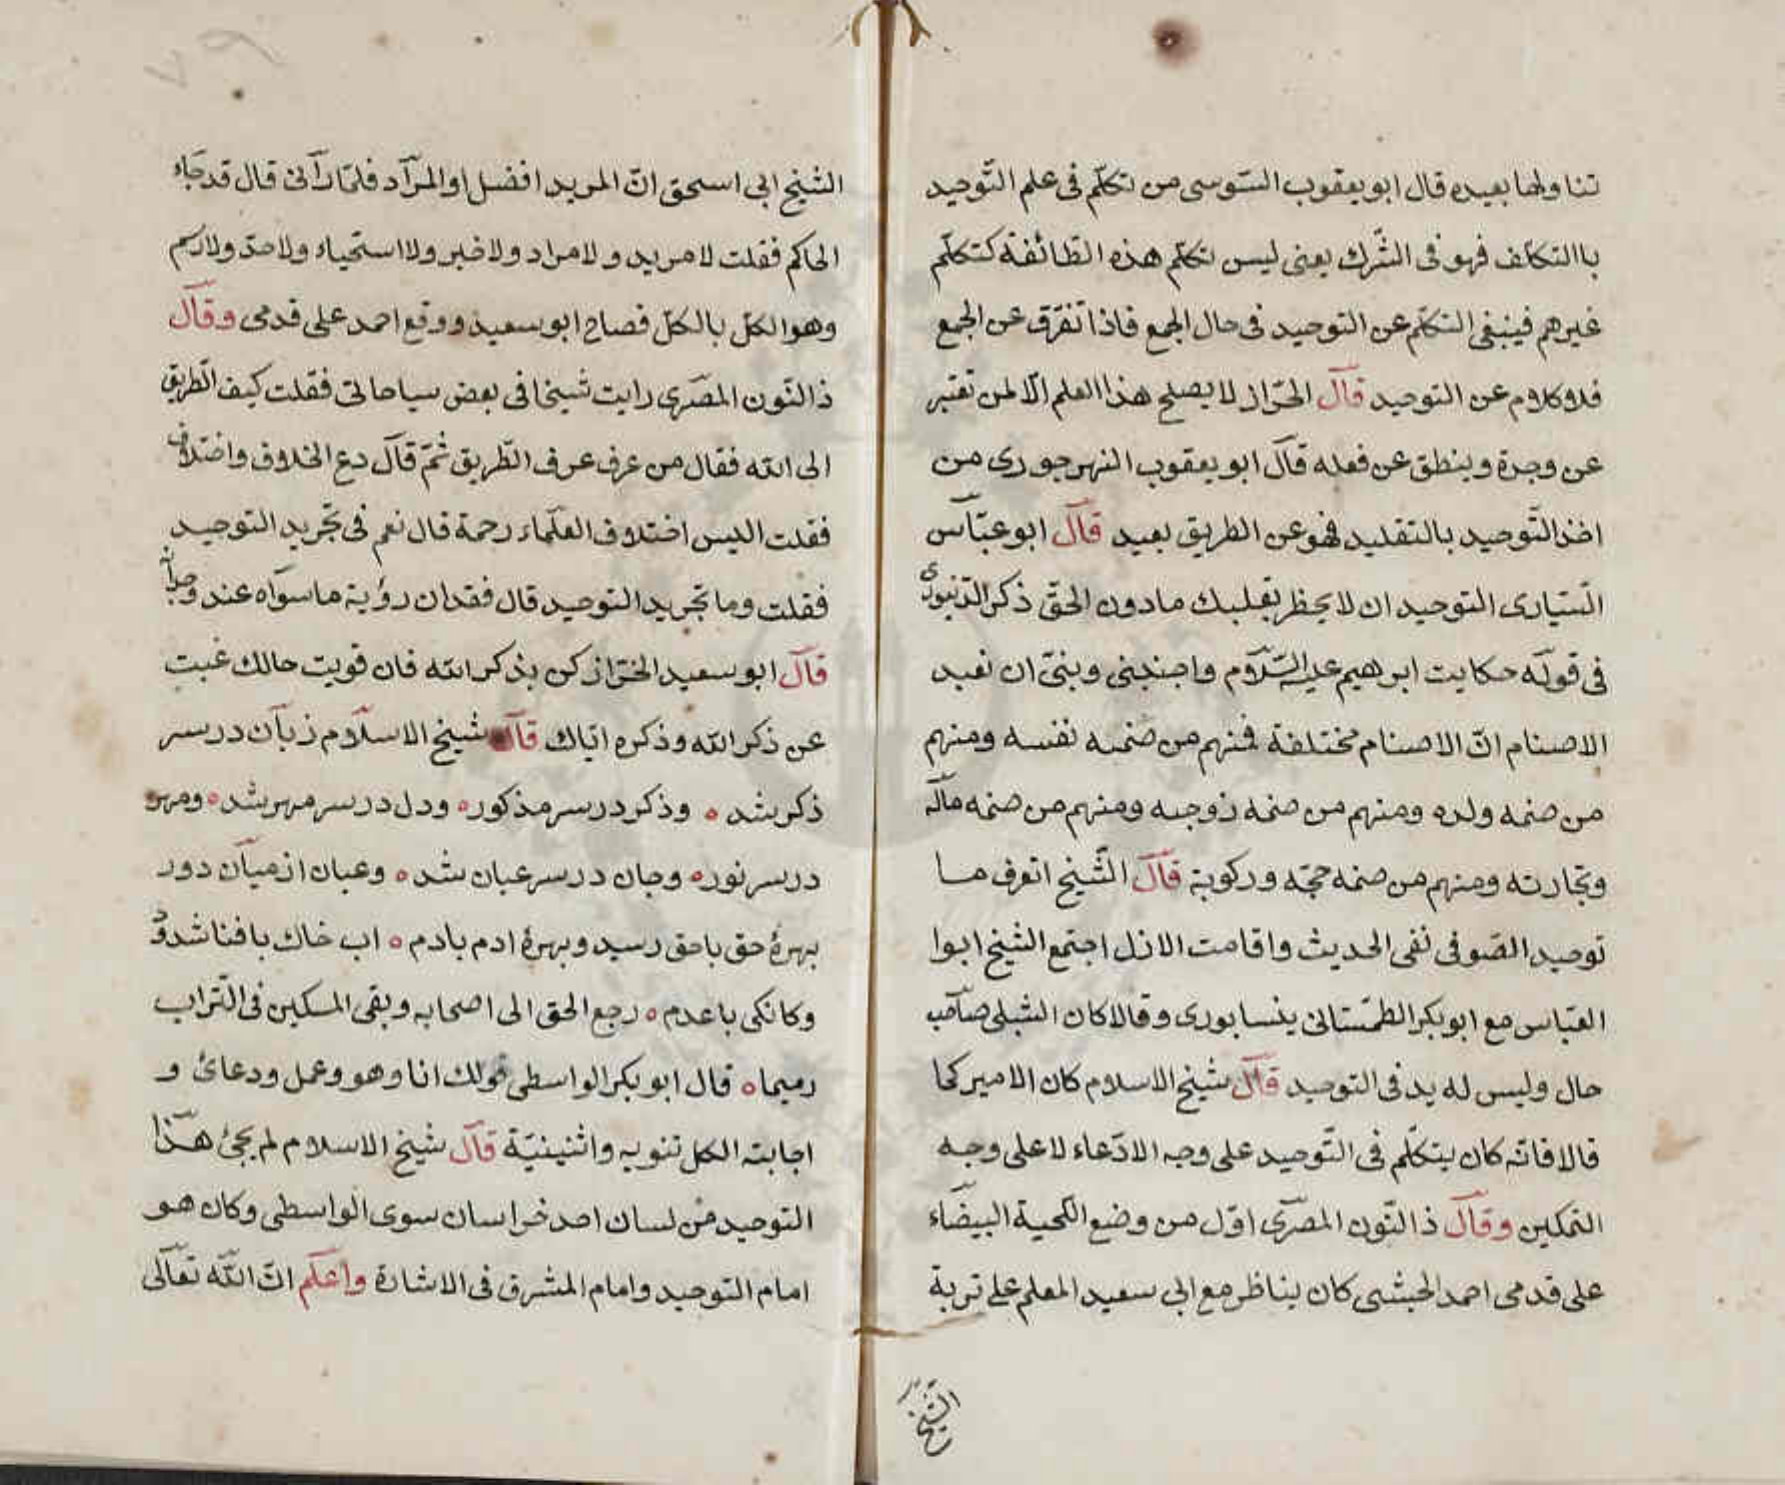 تناولها بعيده قال ابو يعقوب السّوسى من تكلّم فى علم التّوحيد
باالتكلف فهو فى الشّرك يعنى ليس تكلم هذه الطّائفة كتكلّم
غيرهم فينبغى التكلّم عن التوحيد فى حال الجمع فاذا تفرّق عن الجمع
فلا كلام عن التوحيد قال الخرّاز لا يصلح هذا العلم الّا لمن تعبّر
عن وجدة وينطق عن فعله قال ابو يعقوب النهرجورى من
اخذ التّوحيد بالتقليد فهو عن الطريق بعيد قال ابو عبّاس
السّيارى التوحيد ان لا يخطر بقلبك مادون الحقّ ذكر الدّينورى
فى قوله حكايت ابرهيم عليه السّلام واجنبنى وبنىّ ان نعبد
الاصنام انّ الاصنام مختلفة فمنهم من صنمه نفسه ومنهم
من صنمه ولده ومنهم من صنمه زوجه ومنهم من صنمه ماله
وتجارته ومنهم من صنمه حجّه وركوبة قال الشّيخ اتعرف ما
توحيد الصّوفى نفى الحديث واقامت الازل اجتمع الشيخ ابوا
العبّاس مع ابو بكر الطمّستانى ينسابورى وقالا كان الشبلى صاحب
حال وليس له يد فى التوحيد قال شيخ الاسلام كان الامير كما
قالا فانّه كان يتكلّم فى التّوحيد على وجه الادّعاء لا على وجه
التمكين وقال ذالنّون المصرى اوّل من وضع اللحية البيضاء
على قدمى احمد الحبشى كان يناظر مع ابى سعيد المعلم على تربة
الشيخ
الشيخ ابى اسحق انّ المريد افضل او المراد فلمّا رآنى قال قد جاء
الحاكم فقلت لا مريد ولا مراد ولا خبر ولا استحياء ولا حدّ ولا رسم
وهو الكلّ بالكلّ فصاح ابو سعيد ووقع احمد على قدمى وقال
ذالنّون المصرى رايت شيخا فى بعض سياحاتى فقلت كيف الطّريق
الى الله فقال من عرف عرف الطّريق ثمّ قال دع الخلاف واختلاف
فقلت اليس اختلاف العلماء رحمة قال نعم فى تجريد التوحيد
فقلت وما تجريد التوحيد قال فقدان رؤية ما سواه عند وجدانه
قال ابو سعيد الخرّاز كن بذكر الله فان قويت حالك غبت
عن ذكر الله وذكره ايّاك قال شيخ الاسلام زبان در سر
ذكر شد ه وذكر در سر مذكور ه ودل در سر مهر شد ه ومهر
در سر نور ه وجان در سر عيان شد ه وعيان از ميان دور
بهرهٔ حق باحق رسيد وبهرهٔ ادم بادم ه اب خاك بافنا شد و
وكانكى باعدم ه رجع الحق الى اصحابه وبقى المسكين فى التراب
رميما ه قال ابو بكر الواسطى قولك انا وهو وعمل ودعائ و
اجابته الكل تنويه واثنينيّة قال شيخ الاسلام لم يجئ هذا
التوحيد من لسان احد خراسان سوى الواسطى وكان هو
امام التوحيد وامام المشرق فى الاشارة واعلم انّ الله تعالى